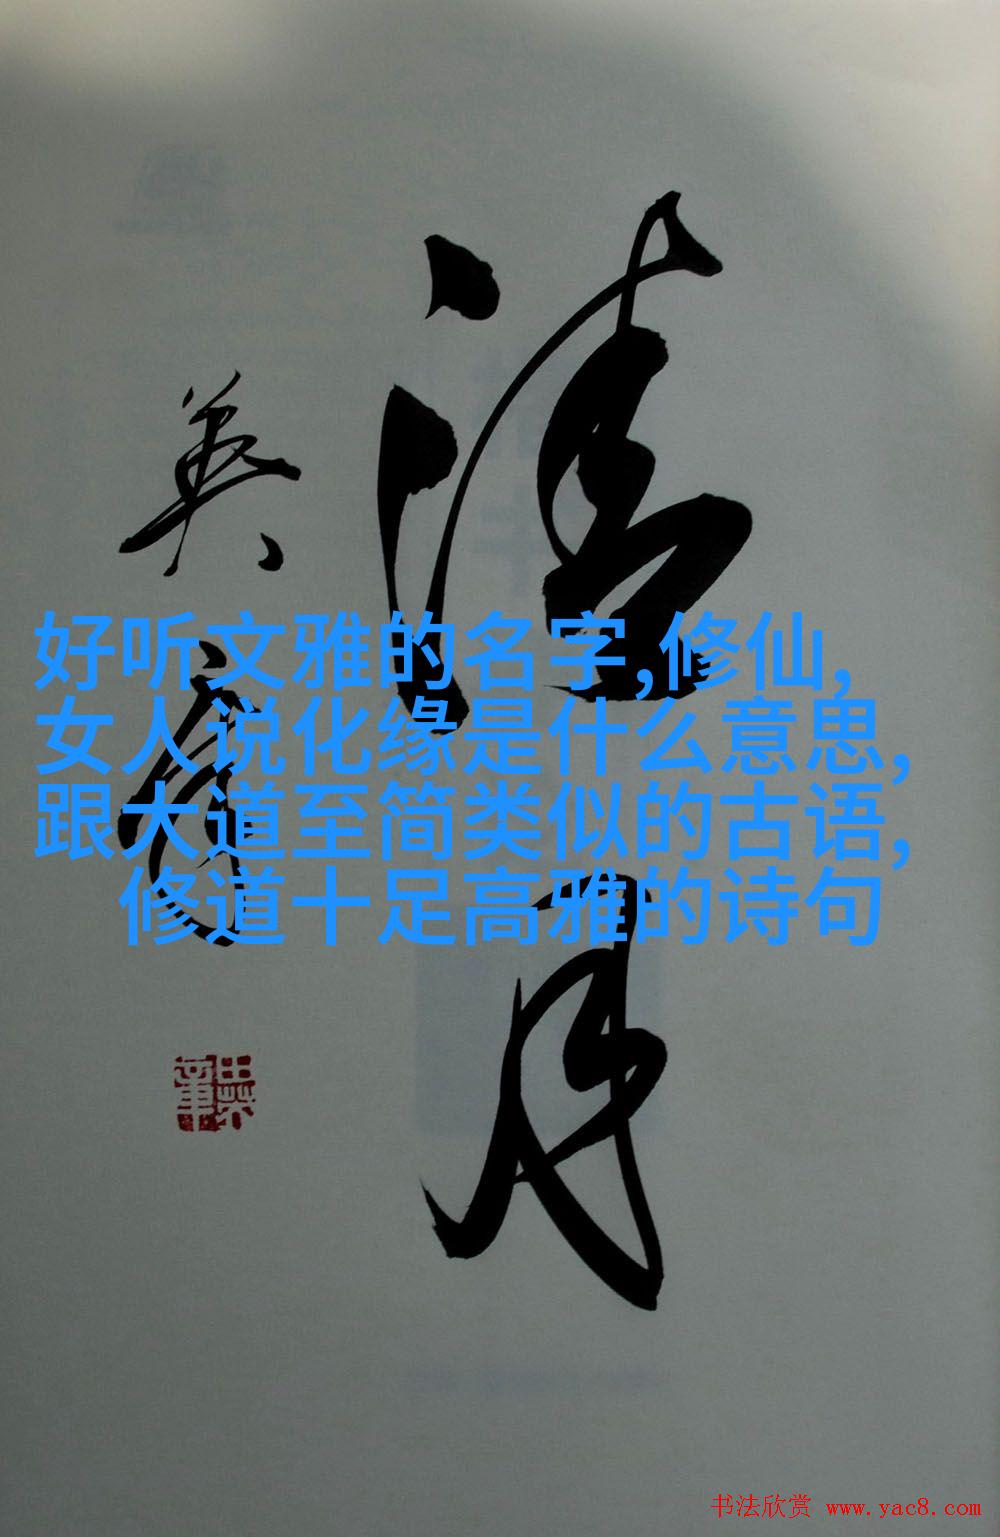 清月
英章
好听文雅的名字,修仙,
女人说化缘是什么意思,
跟大道至简类似的古语,
修道十足高雅的诗句
书法欣赏 www.yac8.com